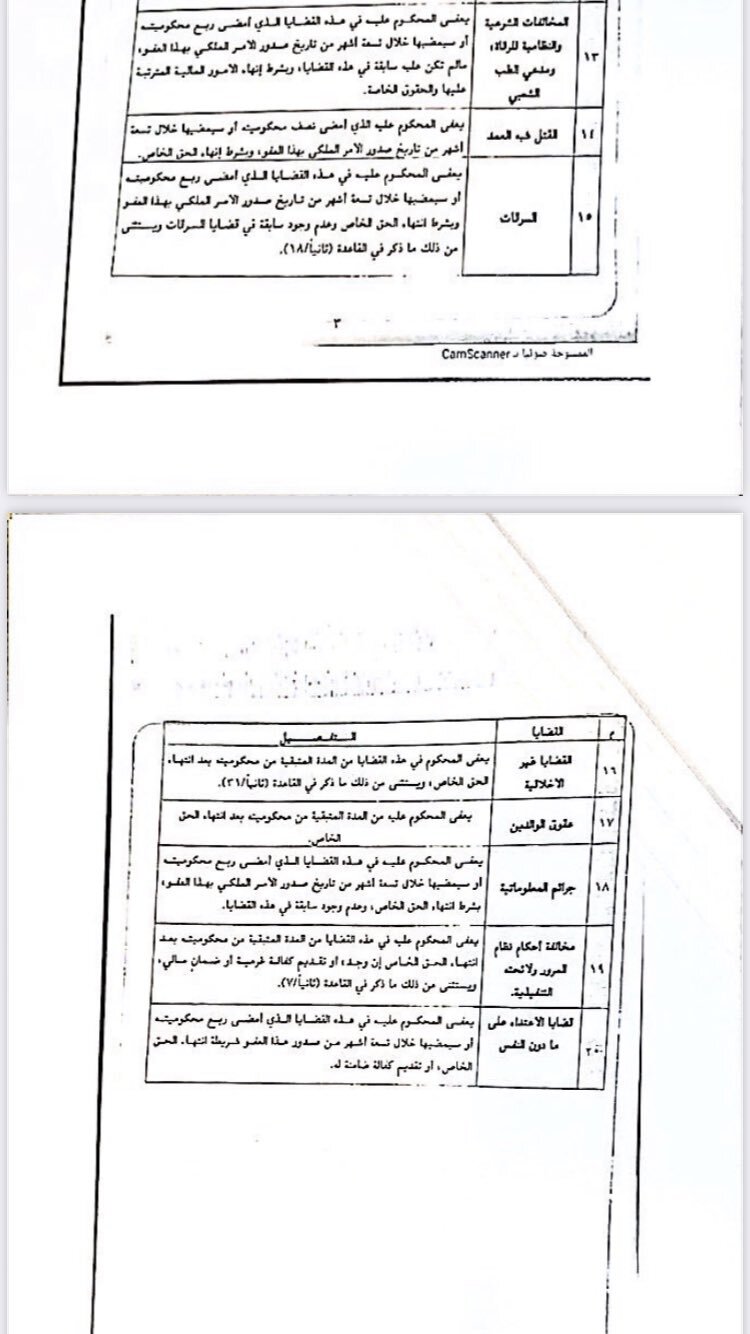 المخالفات الشرعية
والنظامية للرقاة؛
ومدعي الطب
الشعبي
١٣
يعفى المحكوم عليه في هذه القضايا الذي أمضى ربع محكوميته
أو سيمضيها خلال تسعة أشهر من تاريخ صدور الأمر الملكي بهذا العفو،
مالم تكن عليه سابقة في هذه القضايا، وبشرط إنهاء الأمور المالية المترتبة
عليها والحقوق الخاصة.
١٤
القتل شبه العمد
يعفى المحكوم عليه الذي أمضى نصف محكوميته أو سيمضيها خلال تسعة
أشهر من تاريخ صدور الأمر الملكي بهذا العفو، وبشرط إنهاء الحق الخاص.
١٥
السرقات
يعفى المحكوم عليه في هذه القضايا الذي أمضى ربع محكوميته
أو سيمضيها خلال تسعة أشهر من تاريخ صدور الأمر الملكي بهذا العفو
وبشرط انتهاء الحق الخاص وعدم وجود سابقة في قضايا السرقات ويستثنى
من ذلك ما ذكر في القاعدة (ثانياً/١٨).
٣
الممسوحة ضوئيا بـ CamScanner
م
القضايا
التفصيل
١٦
القضايا غير
الأخلاقية
يعفى المحكوم في هذه القضايا من المدة المتبقية من محكوميته بعد انتهاء
الحق الخاص؛ ويستثنى من ذلك ما ذكر في القاعدة (ثانياً/٣١).
١٧
عقوق الوالدين
يعفى المحكوم عليه من المدة المتبقية من محكوميته بعد انتهاء الحق
الخاص.
١٨
جرائم المعلوماتية
يعفى المحكوم عليه في هذه القضايا الذي أمضى ربع محكوميته
أو سيمضيها خلال تسعة أشهر من تاريخ صدور الأمر الملكي بهذا العفو،
بشرط انتهاء الحق الخاص، وعدم وجود سابقة في هذه القضايا.
١٩
مخالفة أحكام نظام
المرور ولائحته
التنفيذية.
يعفى المحكوم عليه في هذه القضايا من المدة المتبقية من محكوميته بعد
انتهاء الحق الخاص إن وجد؛ أو تقديم كفالة غرمية أو ضمان مالي،
ويستثنى من ذلك ما ذكر في القاعدة (ثانياً/٧).
٢٠
قضايا الاعتداء على
ما دون النفس
يعفى المحكوم عليه في هذه القضايا الذي أمضى ربع محكوميته
أو سيمضيها خلال تسعة أشهر من صدور هذا العفو شريطة انتهاء الحق
الخاص، أو تقديم كفالة ضامنة له.